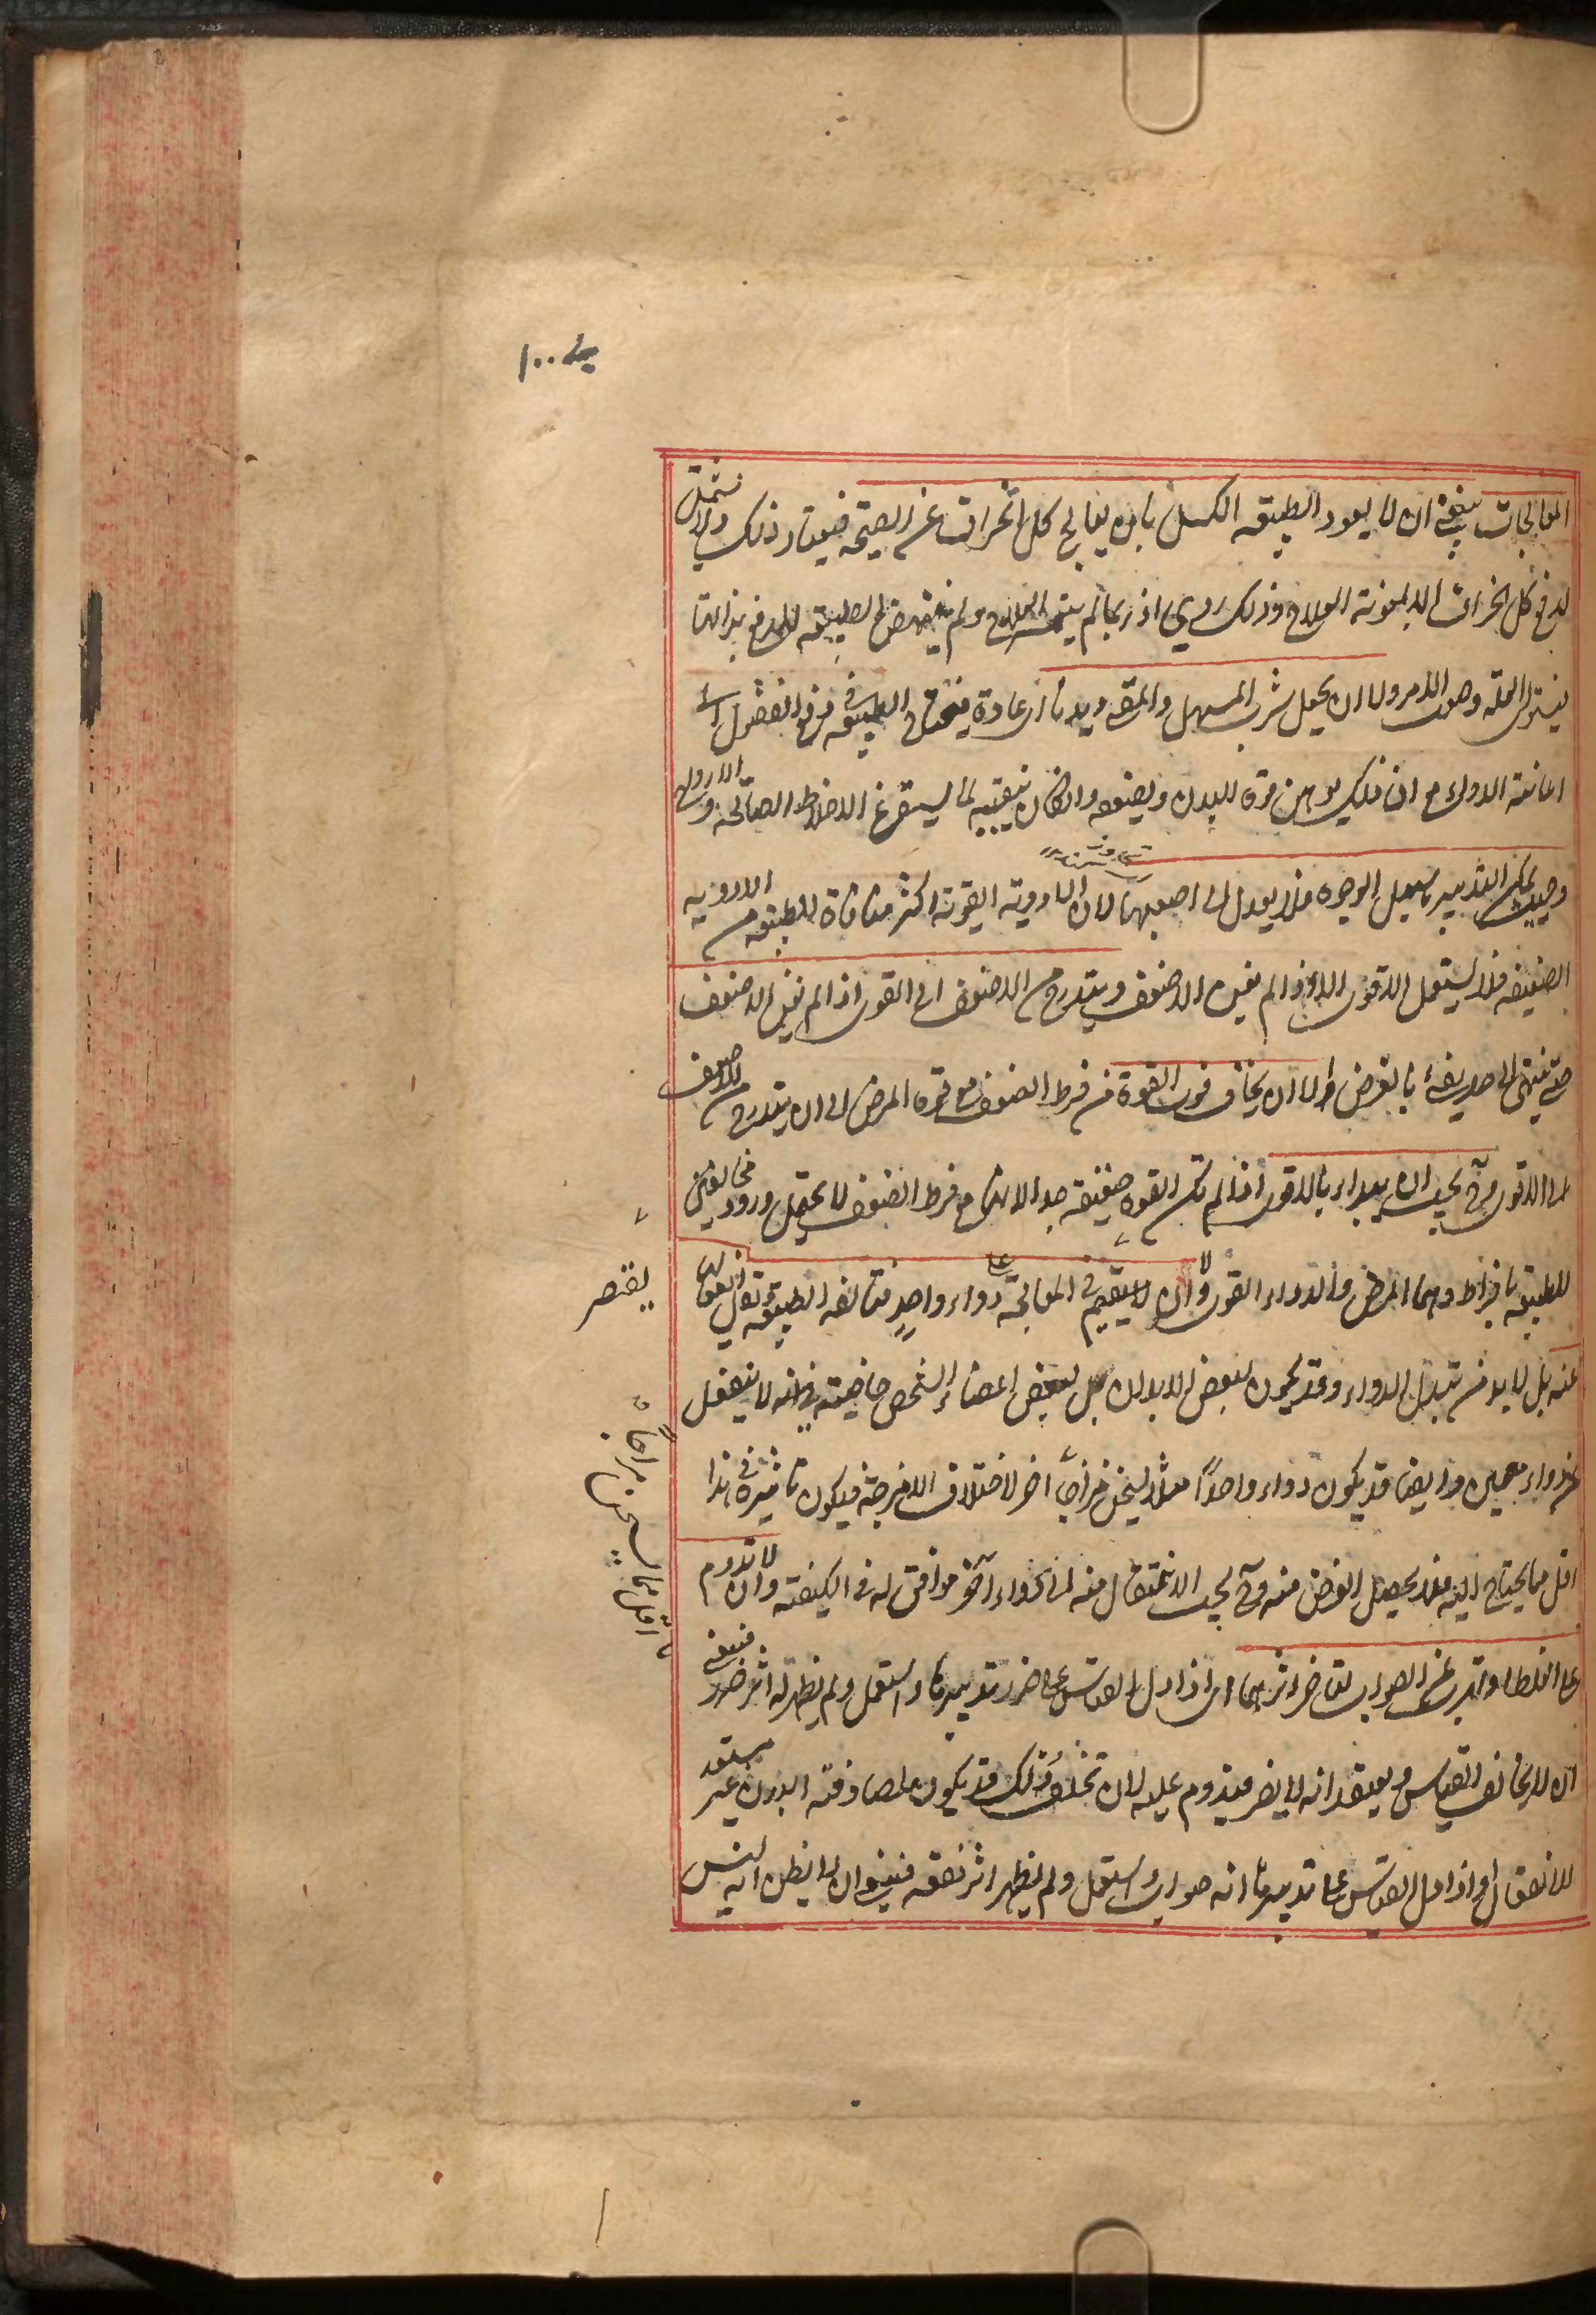 المعالجات ينبغي ان لا يعود الطبيعة الكسل بان يعالج كل انحراف عن الصحة فيعتاد ذلك ولا تشتمل
لدفع كل انحراف الا بمعونة العلاج وذلك ردي اذ ربما لم يتيسر العلاج ولم ينهض الطبيعة للدفع بذاتها
فيستولى العلة وهو الامر ولا ان يجعل شرب المسهل والمقى ديدنا اى عادة فيحتاج الطبيعة في دفع الفضول الى
اعانة الدواء مع ان ذلك يوهن قوة البدن ويضعفه وان كان نقيا لما يستفرغ الاخلاط الصالحة
وحيث يمكن التدبير باسهل الوجوه فلا يعدل الى اصعبها لان الادوية القوية اكثر منافاة للطبيعة من الادوية
الضعيفة فلا يستعمل الاقوى الا اذا لم يغن الاضعف ويتدرج من الاضعف الى الاقوى اذا لم يغن الاضعف
حتى ينتهى الى حد يفى بالغرض الا ان يخاف فوت القوة من فرط الضعف مع قوة المرض الى ان يتدرج من الاضعف
الى الاقوى وح يجب ان يبداء بالاقوى اذا لم تكن القوة ضعيفة جدا لانها مع فرط الضعف لا يحتمل ورود مخالفين
للطبيعة بافراط وهما المرض والدواء القوى ولا ان يقيم في المعالجة على دواء واحد فتالفه الطبيعة ويقل انفعالها
عنه بل لا بد من تبديل الدواء وقد يكون لبعض الابدان بل لبعض اعضاء الشخص خاصية في انه لا ينفعل
عن دواء معين وايضا قد يكون دواء واحدًا مثلا يسخن مزاجا اخر لاختلاف الامزجة فيكون تاثيره في هذا
اقل مما يحتاج اليه فلا يحصل الغرض منه وح يجب الانتقال منه الى دواء آخر موافق له في الكيفية وان لا تدوم
على الغلط او تهرب عن الصواب لتاخر اثرهما اى اذا دل القياس على ضرر تدبير ما واستعمل ولم يظهر له اثر ضرر فينبغي
ان لا يخالف القياس ويعتقد انه لا يضر فيدوم عليه لان تخلف ذلك قد يكون لمصادفته البدن غير مستعد
للانفعال واذا دل القياس على تدبير ما انه صواب واستعمل ولم يظهر اثر نفعه فينبغي ان لا يظن انه ليس
يقتصر
اقل مما يسخن مزاجا